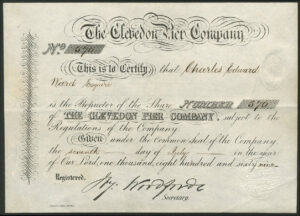 The Clevedon Pier Company
No. 570
This is to Certify that Charles Edward
Ward Esquire
is the Proprietor of the Share NUMBER 570
of THE CLEVEDON PIER COMPANY, subject to the
Regulations of the Company.
Given under the common seal of the Company
the seventh day of July in the year
of Our Lord, one thousand eight hundred and sixty nine
Registered.
Secretary.